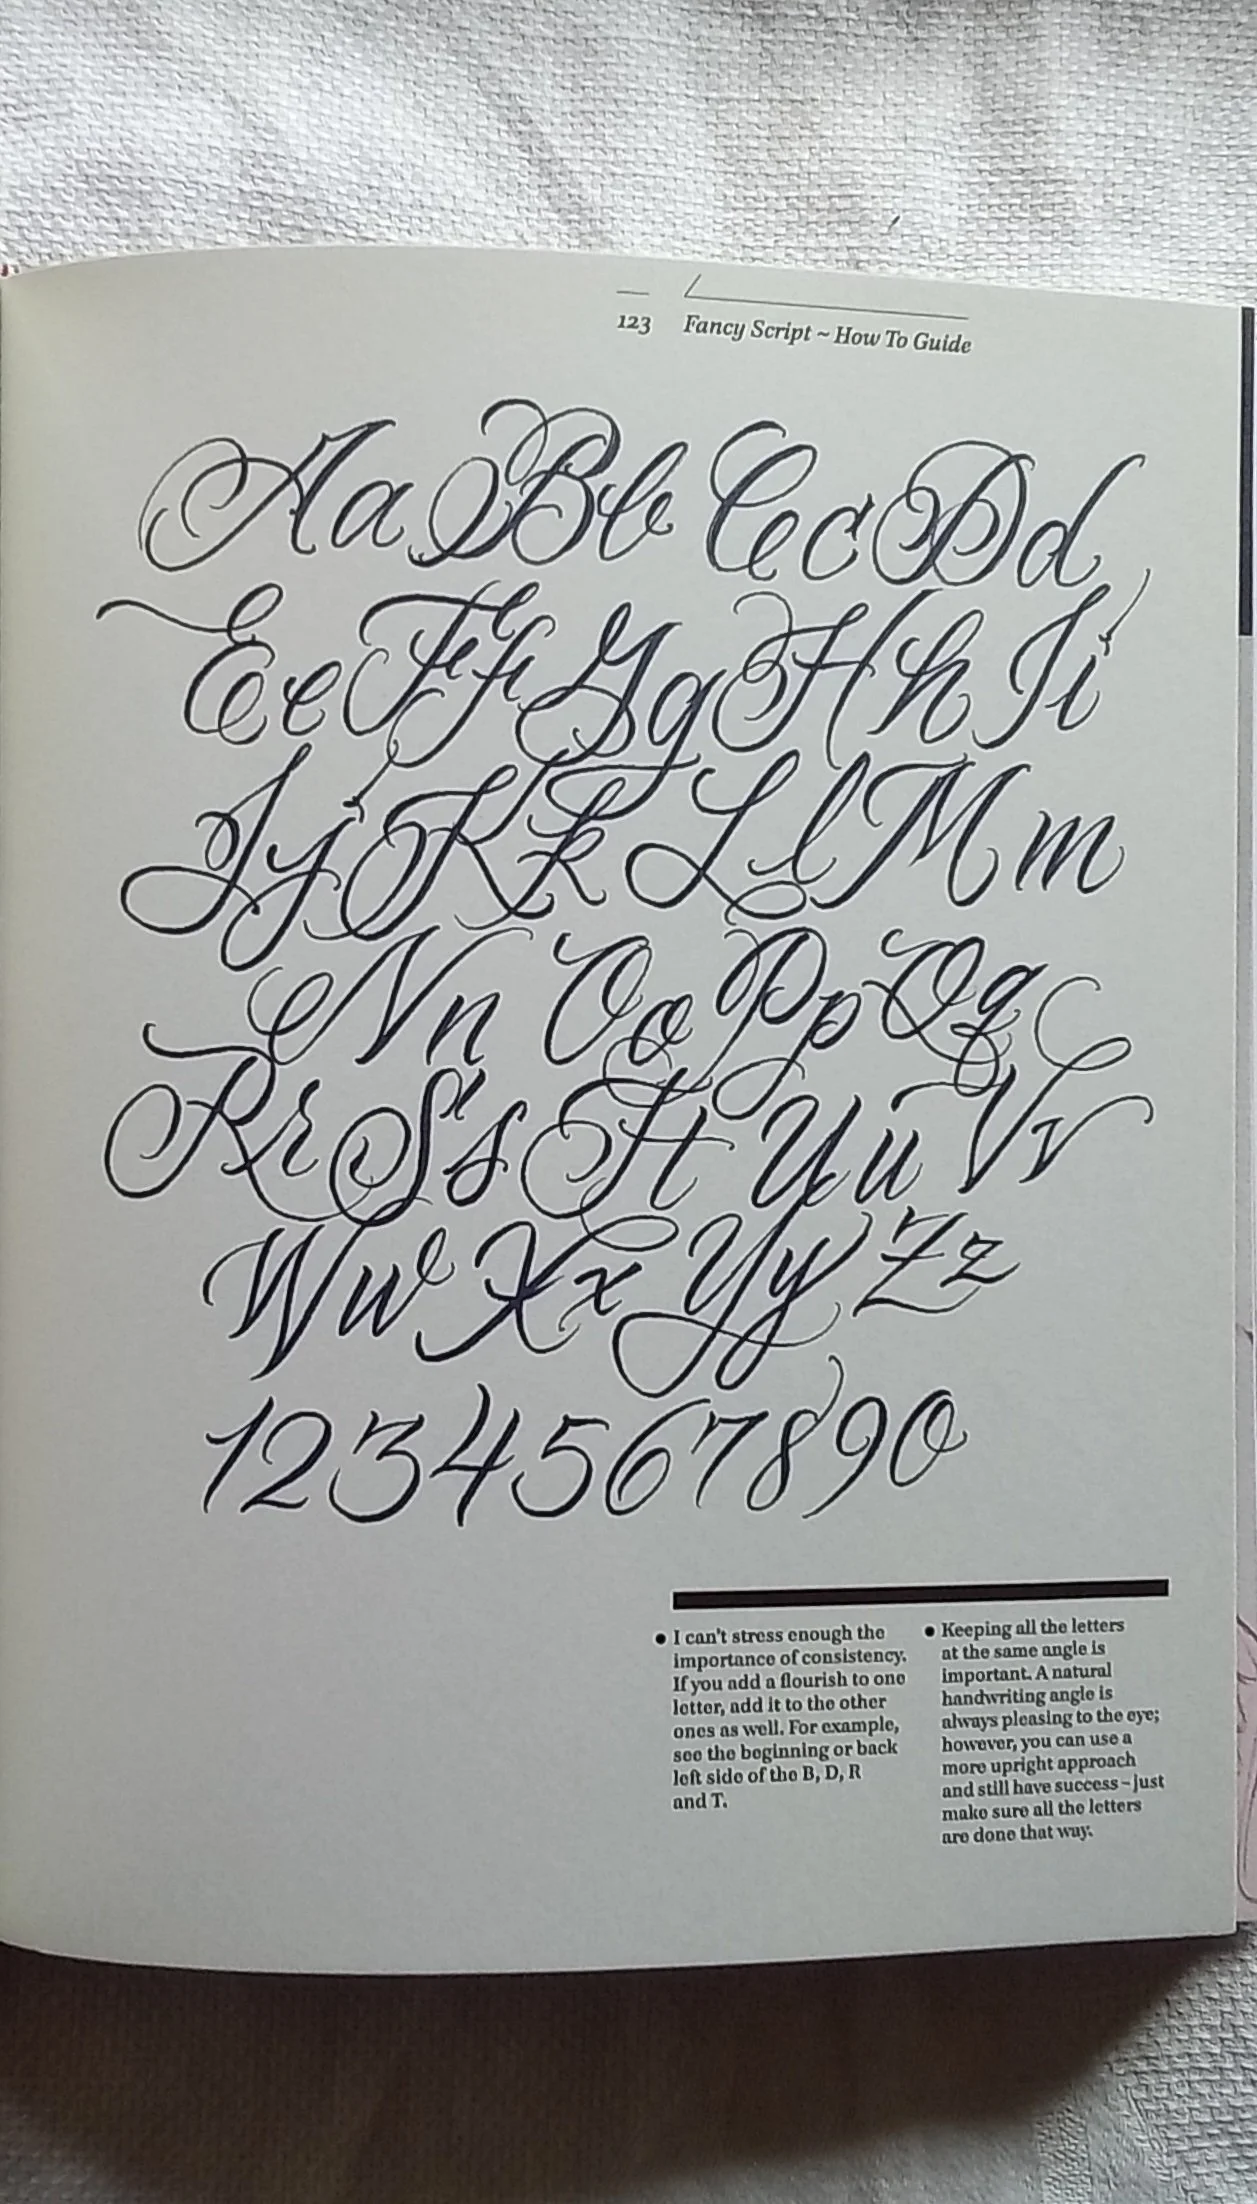 123 Fancy Script ~ How To Guide
Aa Bb Cc Dd
Ee Ff Gg Hh Ii
Jj Kk Ll Mm
Nn Oo Pp Qq
Rr Ss Tt Uu Vv
Ww Xx Yy Zz
1234567890
• I can't stress enough the
importance of consistency.
If you add a flourish to one
letter, add it to the other
ones as well. For example,
see the beginning or back
left side of the B, D, R
and T.
• Keeping all the letters
at the same angle is
important. A natural
handwriting angle is
always pleasing to the eye;
however, you can use a
more upright approach
and still have success – just
make sure all the letters
are done that way.